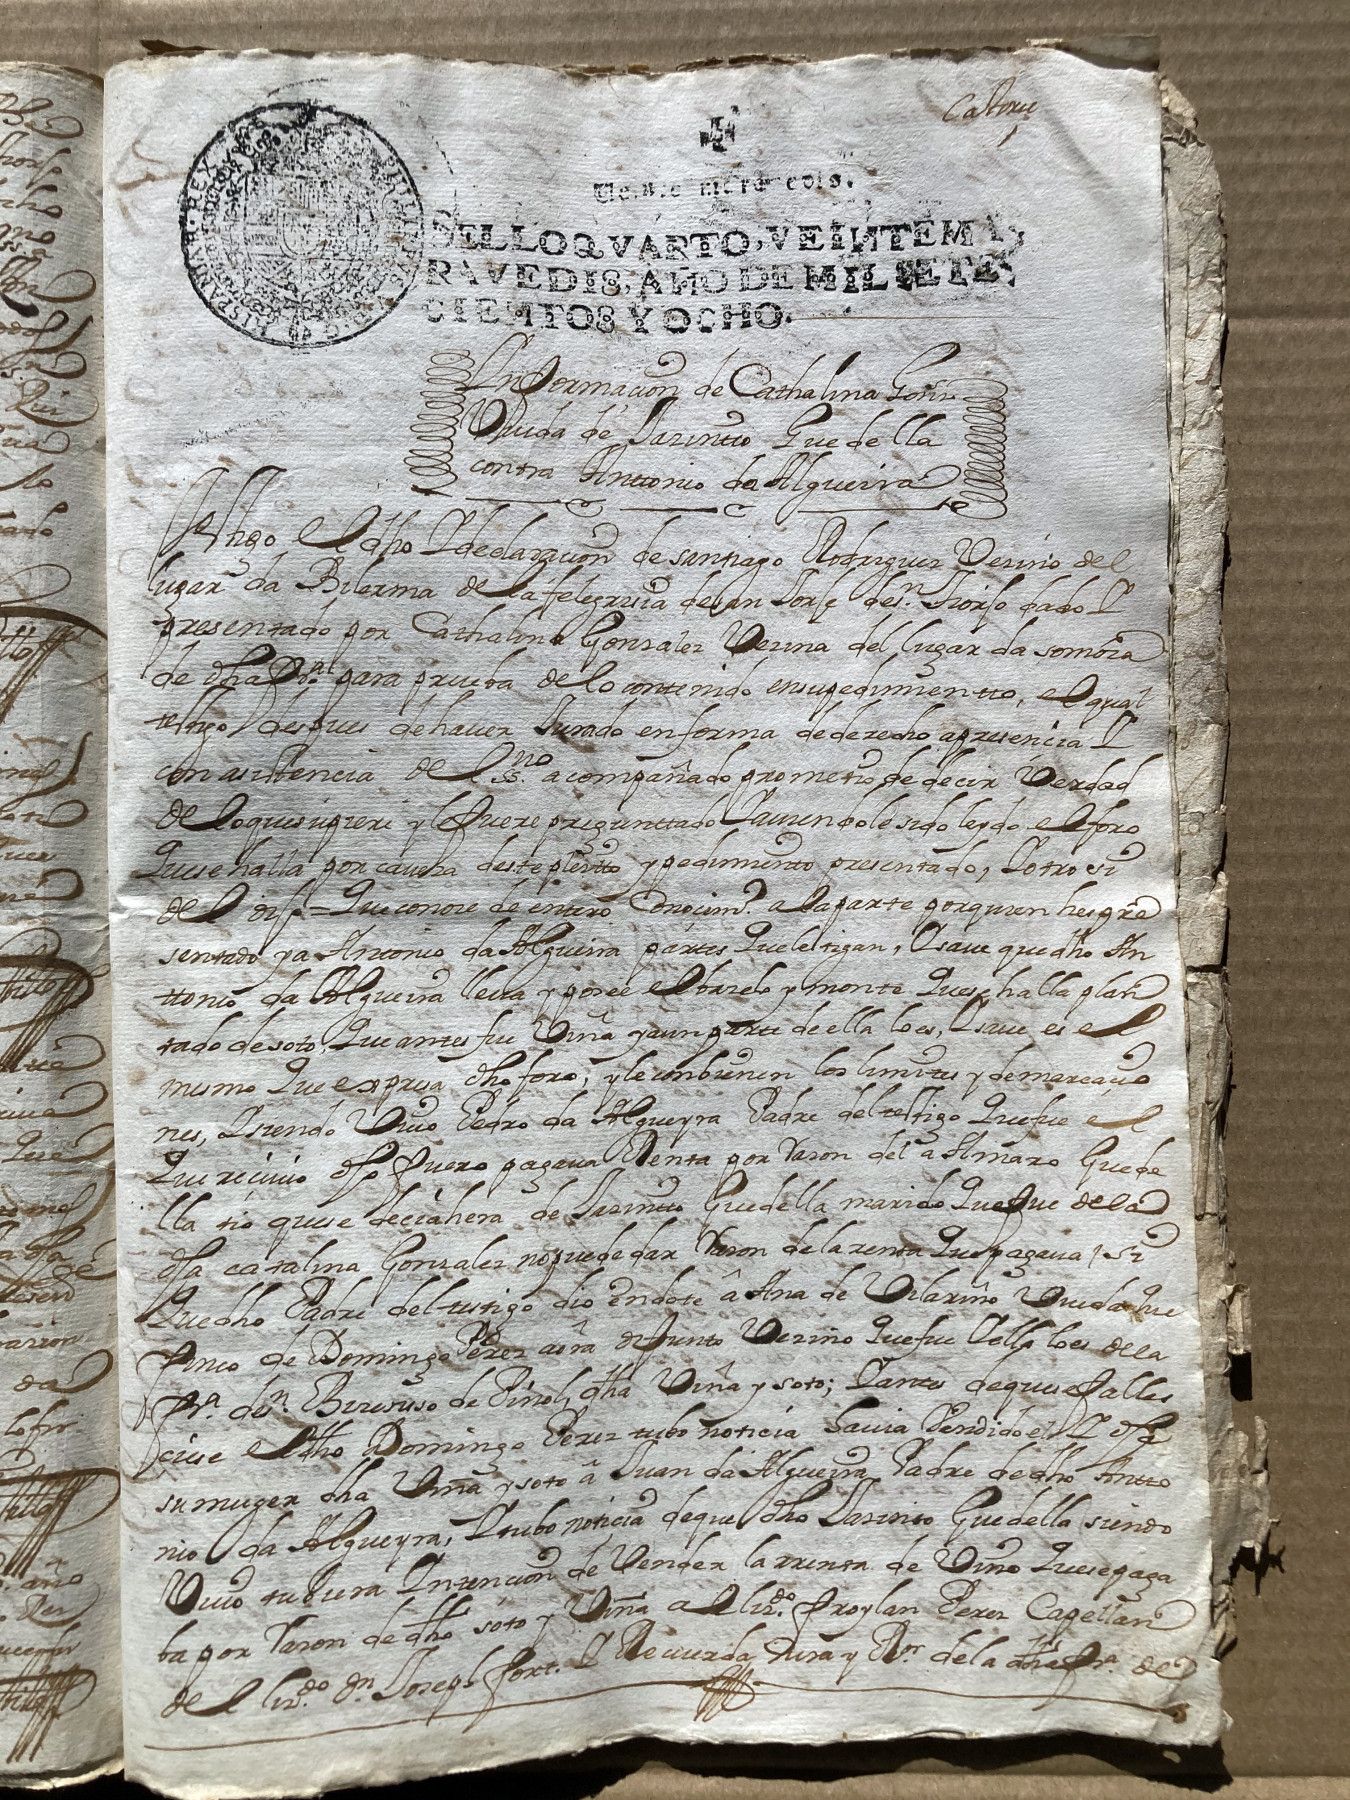 Catorce
Veinte maravedis.
SELLO QVARTO, VEINTE MA
RAVEDIS, AÑO DE MIL SETE
CIENTOS Y OCHO.
PHILIPPVS HISPANIAR REX
Ynformacion de Cathalina Gonz
Viuda de Jazintto Guedella
contra Anttonio da Algueira
testigo el dho Y declarazion de santiago Rodriguez Vezino del
lugar da Bilerma de la felegresia de san Jorge de sn dado Y
presentado por Cathalina Gonzalez Vezina del lugar da sombra
de dha frª para prueba de lo contenido en su pedimientto, el qual
testigo despues de haver Jurado en forma de derecho a presencia Y
con asistencia de el ssno acompañado prometio de decir Verdad
de lo que supiere y le fuere preguntado Y aviendole sido leydo el foro
Que se halla por caveza deste pleytto y pedimiento presentado, Y otro si
de el dis = Que conoze de entero conozimto a la parte por quien hes pre
sentado y a Antonio da Algueira partes Que letigan, Y save que dho An
ttonio da Algueira lleva y posee el barelo y monte Que se halla plan
tado de soto, Que antes fue Viña y aun parte de ella lo es, Y save es el
mismo Que espresa dho foro, y le combienen los limites y demarcacio
nes, Y siendo Vivo Pedro da Algueyra Padre del testigo Que fue el
Que recivio dho fuero pagava Renta por razon del a Amaro Guede
lla tio que se decia hera de Jazinto Guedella marido Que fue de la
dha catalina Gonzalez no puede dar razon de la renta Que pagava, si
Que dho Padre del testigo dio en dote â Ana de Vilariño Viuda que
finco de Domingo Perez aora difunto Vezino Que fue de la
frª de sn de Piñol, dha Viña y soto; Y antes de que se falles
ciese el dho Domingo Perez tubo noticia havia Vendido el Y dha
su muger dha Viña y soto â Juan da Algueira Padre de dho Antto
nio da Algueyra, Y tubo noticia de que dho Jazinto Guedella siendo
Vivo tubiera Yntencion de Vender la rrenta de Vino Que se paga
ba por razon de dho soto y Viña a el lizdo froylan Perez Capellan
de el lizdo dn Joseph Y Cura y Rr de la dha frª de